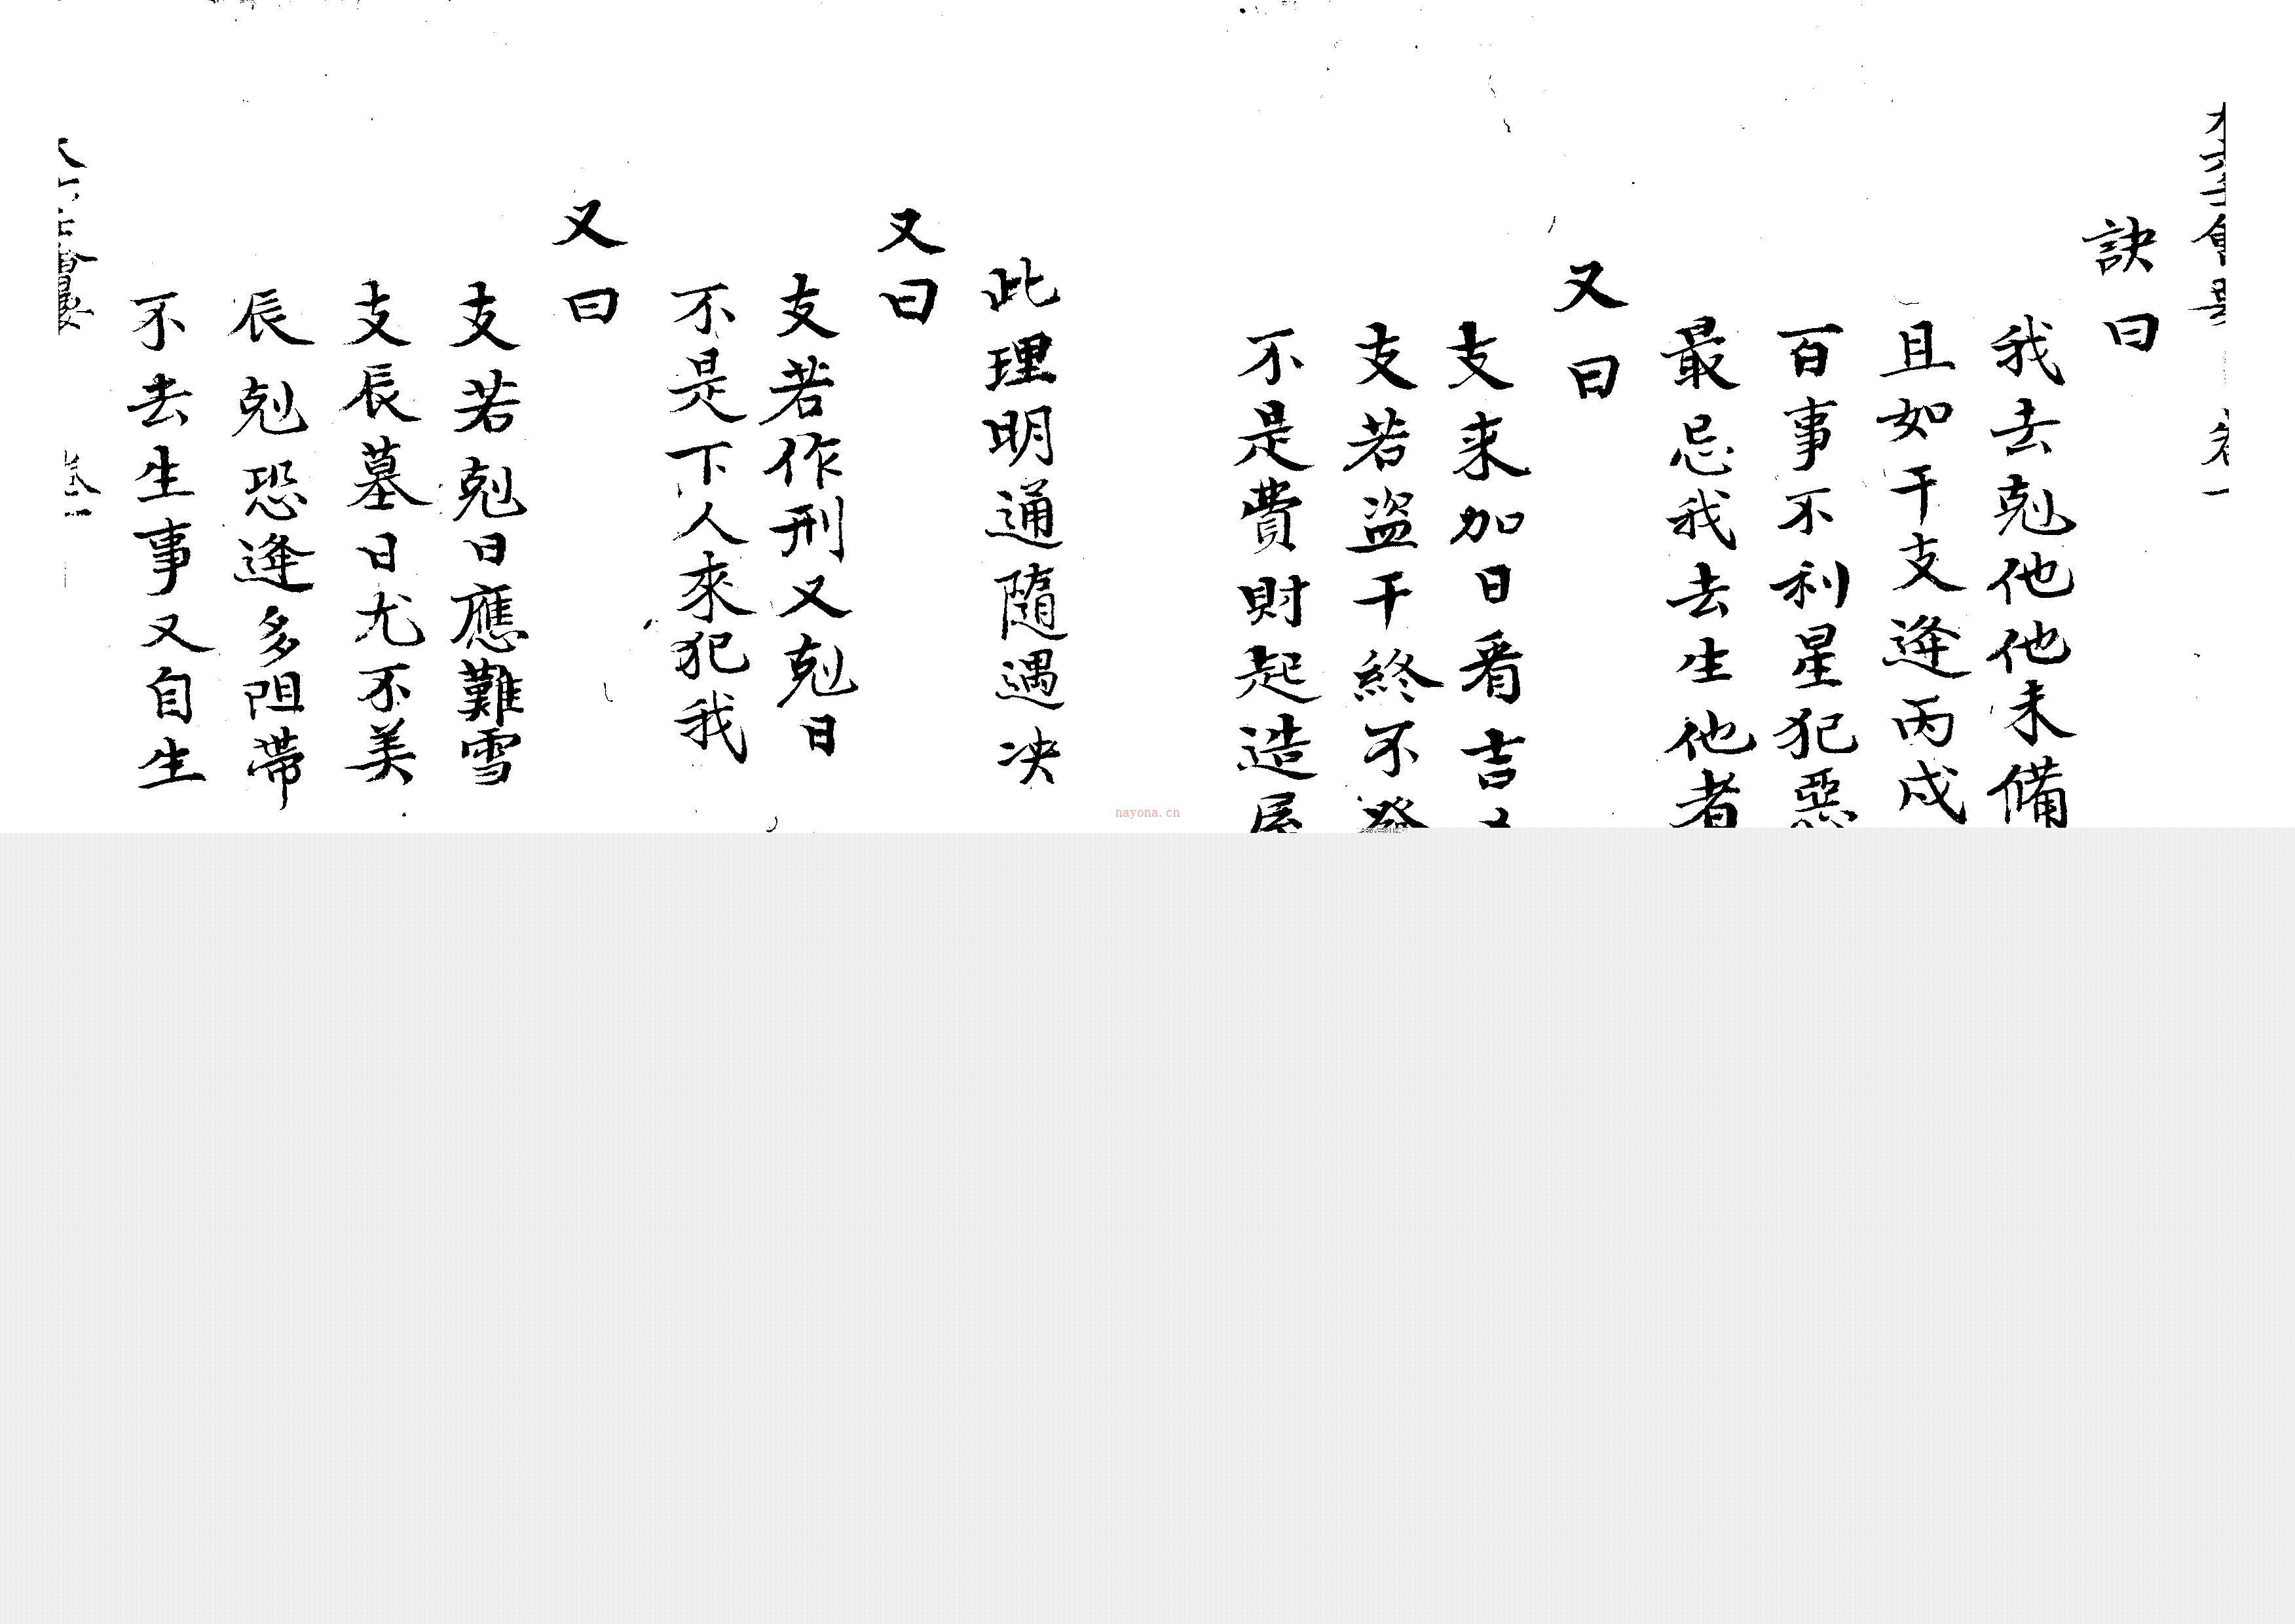 訣曰
我去剋他他未備
且如干支逢丙戌
百事不利星犯惡
最忌我去生他者
又曰
支来加日看吉
支若盗干終不發
不是費財起造屋
此理明通隨遇决
又曰
支若作刑又剋日
不是下人來犯我
又曰
支若剋日應難雪
支辰墓日尤不美
辰剋恐逢多阻滯
不去生事又自生
nayona.cn